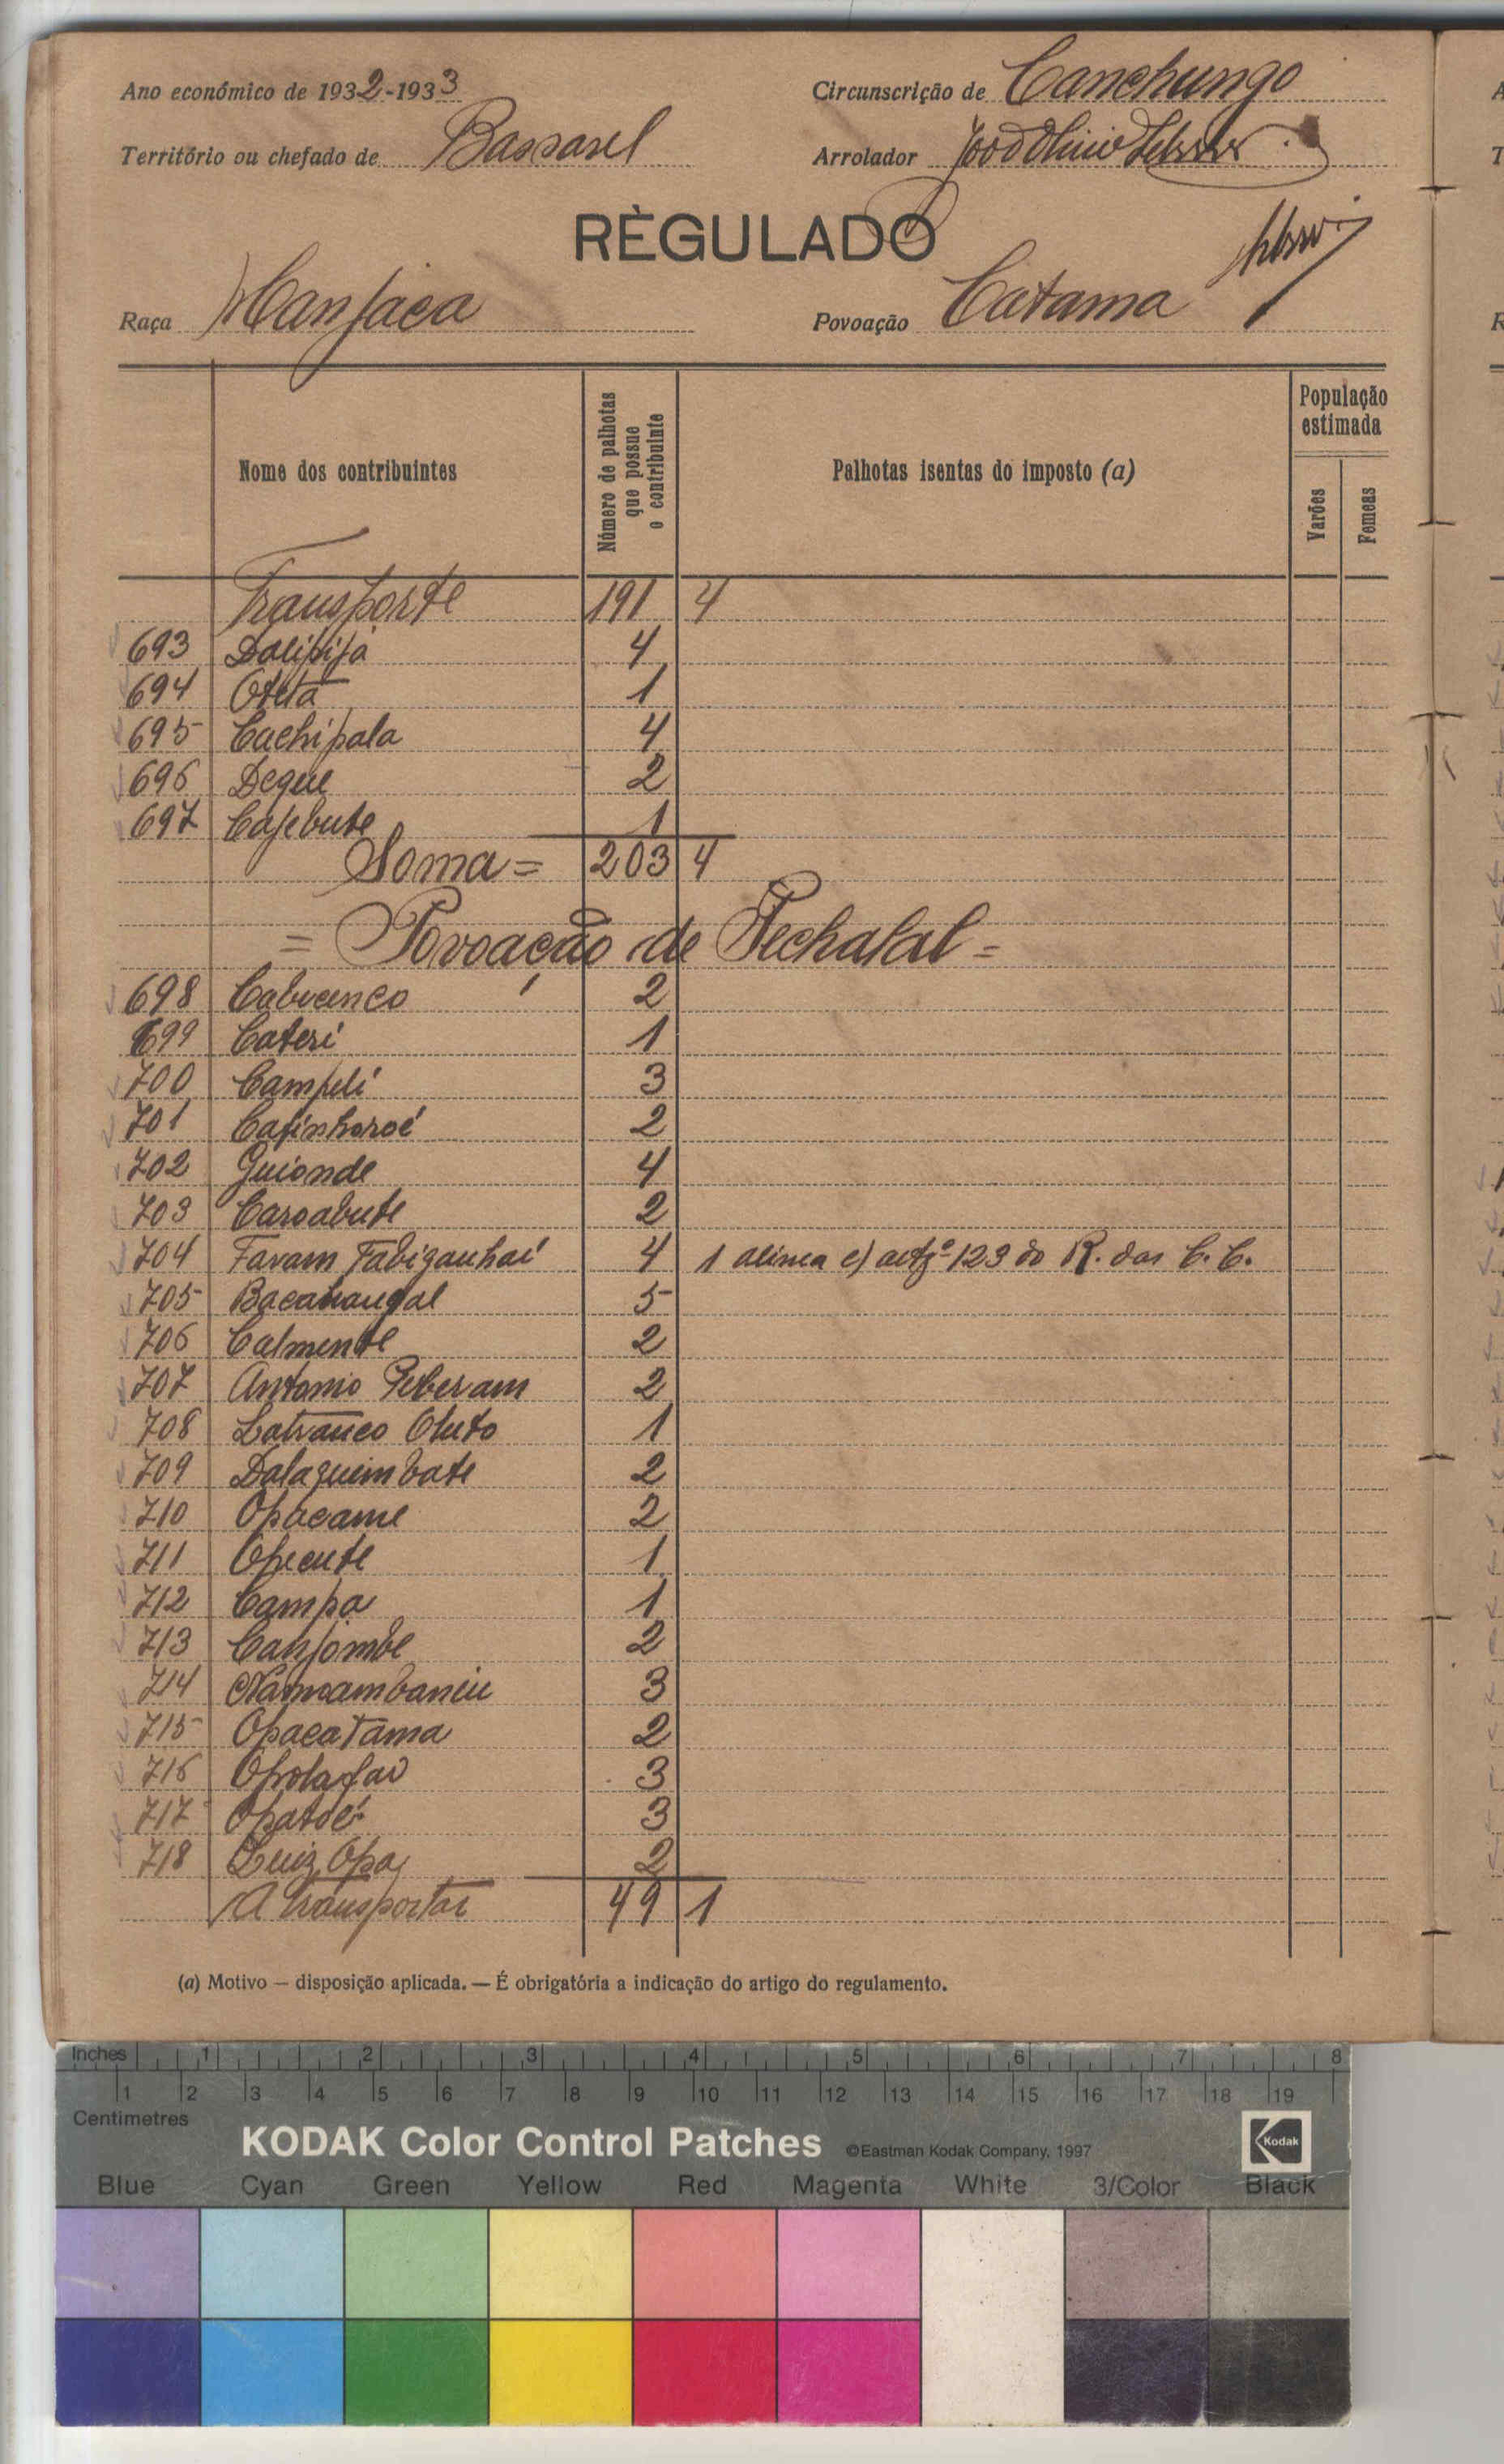 Ano económico de 1932-1933
Circunscrição de Canchungo
Território ou chefado de Bassarel
Arrolador
RÈGULADO
Raça Manjaca
Povoação Catama
Nome dos contribuintes
Número de palhotas que possue o contribuinte
Palhotas isentas do imposto (a)
População estimada
Varões
Femeas
Transporte 191 4
693 Dalipija 4
694 Oteta 1
695 Cachipala 4
696 Deque 2
697 Cajebute 1
Soma = 203 4
= Povoação de Pechalal =
698 2
699 Cateri 1
700 Campeli 3
701 2
702 Guionde 4
703 Caroabute 2
704 Favam Fabiganhaí 4 1 alinea e) artgº 123 do R. das C. C.
705 5
706 Calmente 2
707 Antonio Peberam 2
708 Latranco Oluto 1
709 Dalaquimbate 2
710 Opacame 2
711 Opecute 1
712 Campa 1
713 Canjombe 2
714 3
715 Opacatama 2
716 3
717 Opatoé 3
718 Luiz Opa 2
A transportar 49 1
(a) Motivo — disposição aplicada. — É obrigatória a indicação do artigo do regulamento.
Inches 1 2 3 4 5 6 7 8
1 2 3 4 5 6 7 8 9 10 11 12 13 14 15 16 17 18 19
Centimetres
KODAK Color Control Patches ©Eastman Kodak Company, 1997 Kodak
Blue Cyan Green Yellow Red Magenta White 3/Color Black